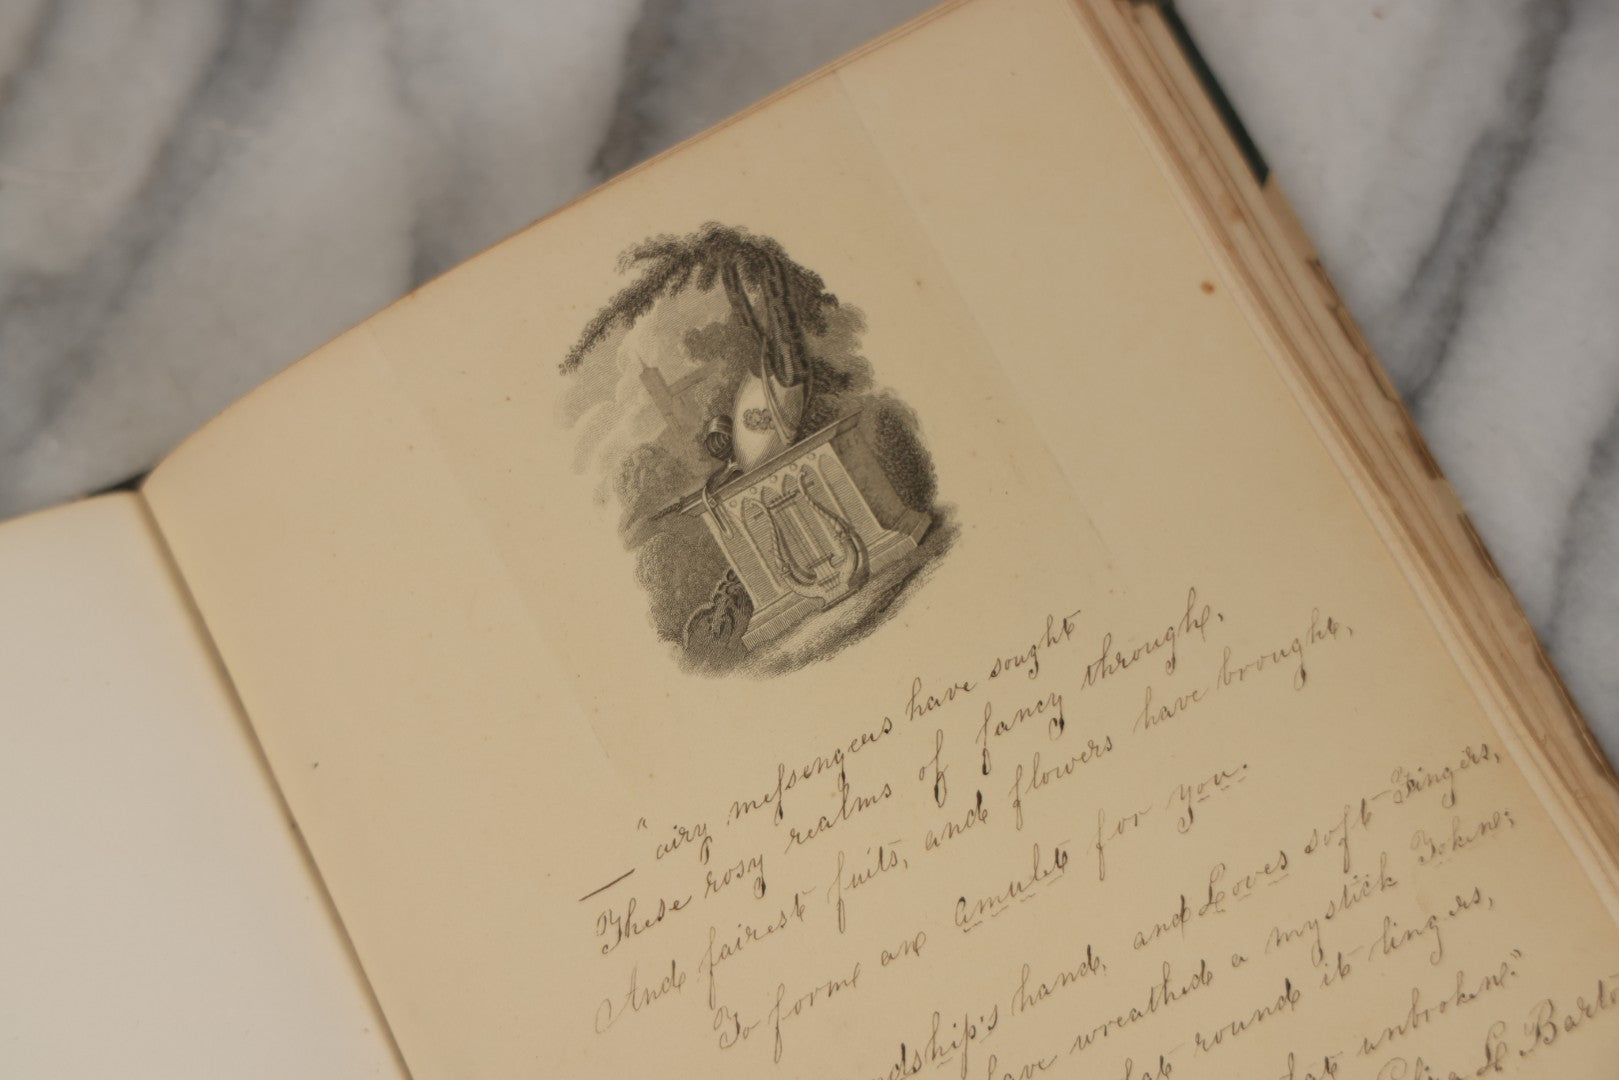 — "airy messengers have sought
These rosy realms of fancy through,
And fairest fruits, and flowers have brought,
To form an amulet for you.
dship's hand, and Loves soft Fingers,
have wreathed a mystick Token;
that round it lingers,
that unbroken."
Eliza L Barto